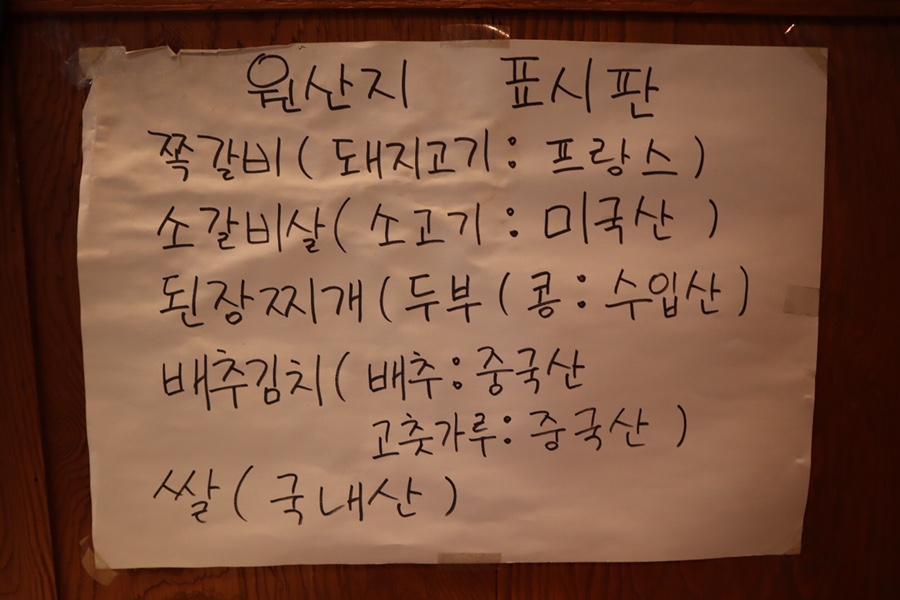 원산지 표시판
쪽갈비 ( 돼지고기 : 프랑스 )
소갈비살 ( 소고기 : 미국산 )
된장찌개 ( 두부 ( 콩 : 수입산 )
배추김치 ( 배추 : 중국산
고춧가루 : 중국산 )
쌀 ( 국내산 )